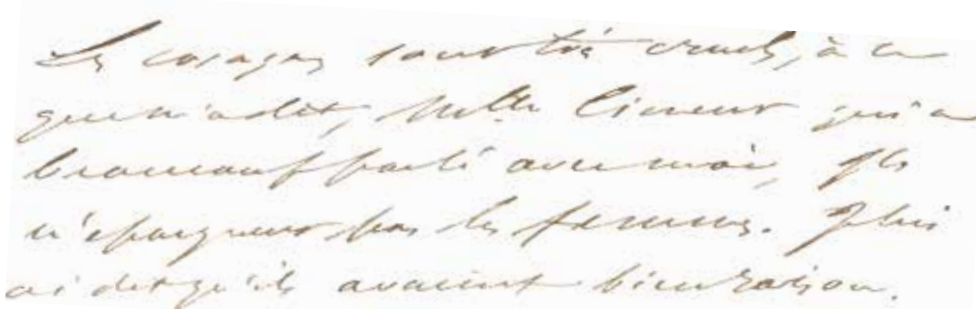 Les cosaques sont très cruels, à ce
que m'a dit, Mlle qui a
beaucoup parlé avec moi, Ils
n'épargnent pas les femmes. Je lui
ai dit qu'ils avaient bien raison.